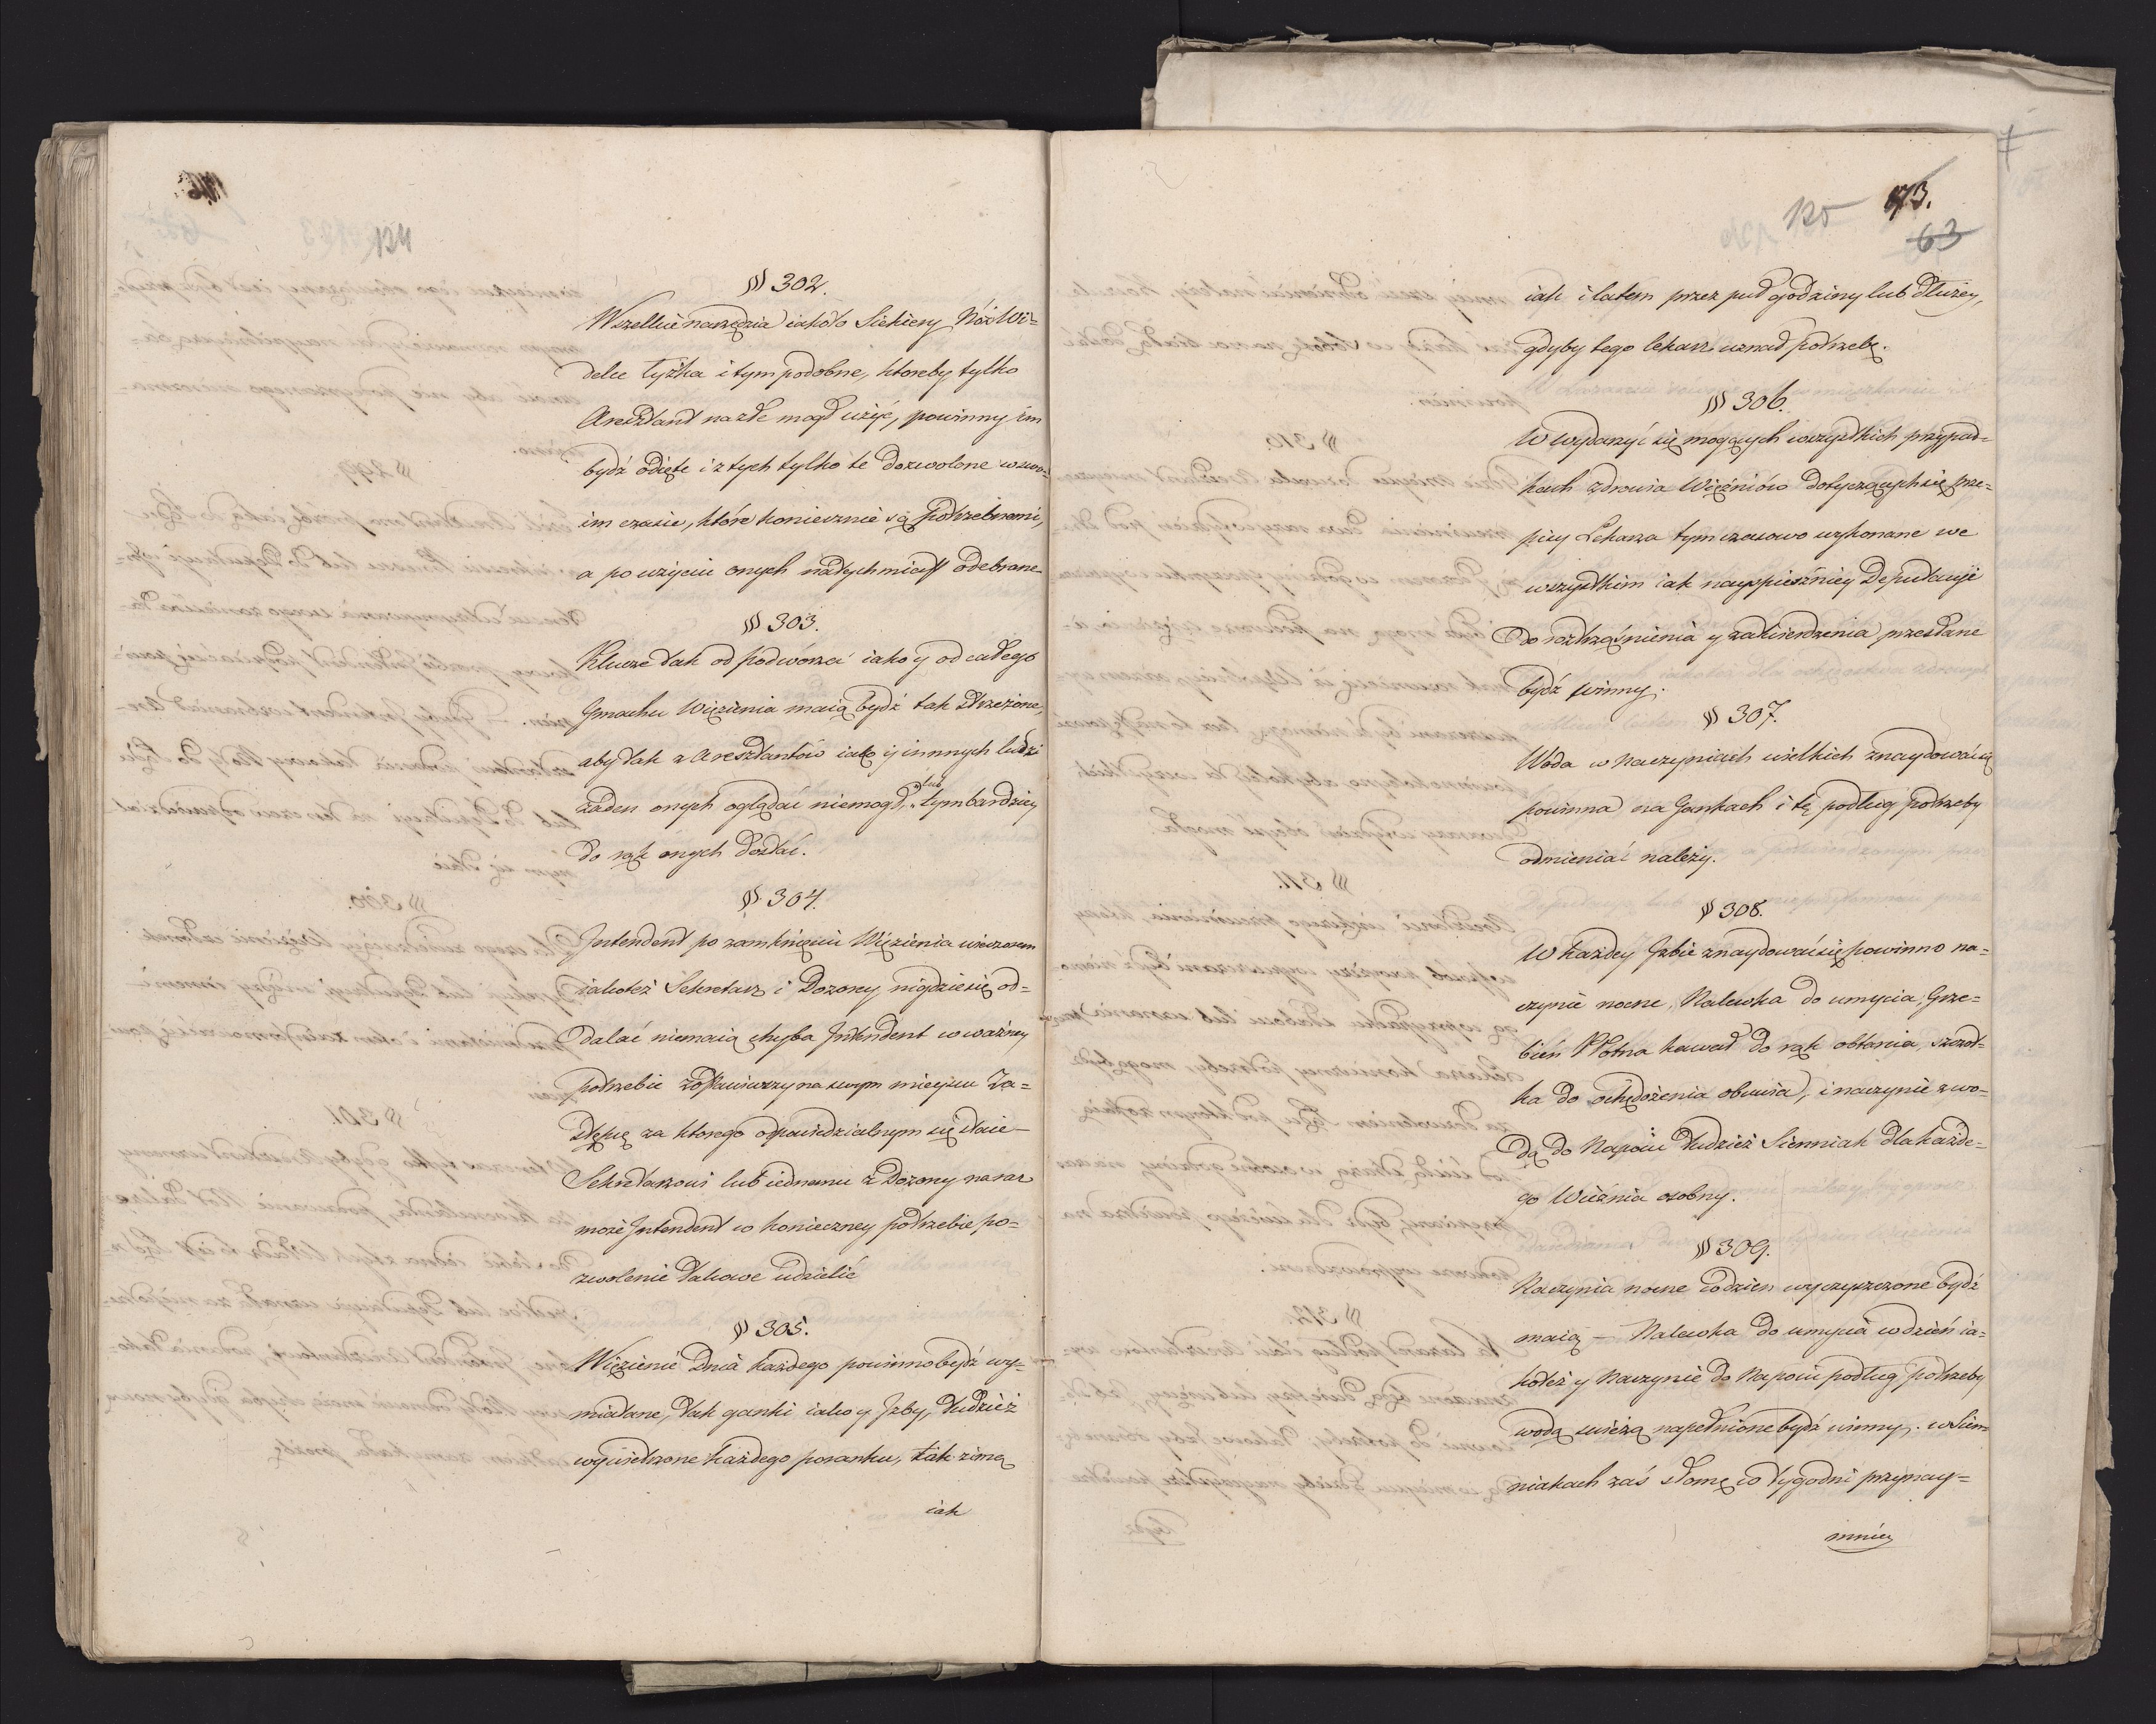 124
§§ 302.
Wszelkie narzędzia iakoto Siekiery Nóż Wi=
delce łyżka i tym podobne, ktoreby tylko
Aresztant na złe mogł użyć, powinny im
bydź odięte i z tych tylko te dozwolone w swo=
im czasie, które koniecznie są potrzebnemi,
a po użyciu onych natychmiast odebrane
§§ 303.
Klucze tak od podworza iako y od całego
Gmachu Więzienia maią bydź tak strzeżone,
aby tak z Aresztantów iako ij innnych ludzi
żaden onych oglądać niemogł, tymbardziey
do rąk onych dostać.
§§ 304.
Intendent po zamknięciu Więzienia wieczorem
iakoteż Sekretarz i Dozorcy nigdzie się od=
dalać niemaią chyba Intendent w ważney
potrzebie zostawiwszy na swym mieyscu Za=
stępcę za ktorego odpowiedzialnym się staie –
Sekretarzowi lub iednemu z Dozorcy naraz
może Intendent w konieczney potrzebie po=
zwolenie takowe udzielić
§§ 305.
Więzienie dnia każdego powinno bydź wy=
miatane, tak ganki iako y Izby, tudzież
wywietrzone każdego poranku, tak zimą
iak
125
173.
63
iak i latem przez puł godziny lub dłużey,
gdyby tego lekarz uznał potrzebę.
§§ 306.
W wydarzyć się mogących wszystkich przypad=
kach zdrowia Więźniów dotyczących się prze=
pisy Lekarza tymczasowo wykonane we
wszystkim iak nayspieszniey Deputacyi
do roztrząśnienia y zatwierdzenia przesłane
bydź winny.
§§ 307.
Woda w naczyniach wielkich znaydować się
powinna na Gankach i tę podług potrzeby
odmieniać należy.
§§ 308.
W każdey Izbie znaydować się powinno na=
czynie nocne, Nalewka do umycia, Grze=
bień Płótna kawał do rąk obtarcia, szczot=
ka do ochędożenia obuwia, i naczynie z wo=
dą do Napoiu tudzież Siennik dla każde=
go Więźnia osobny.
§§ 309.
Naczynia nocne codzien wyczyszczone bydź
maią – Nalewka do umycia w dzień ia=
koteż y Naczynie do Napoiu podług potrzeby
wodą świeżą napełnione bydź winny. w Sien=
nikach zaś słomę co tygodni przynay=
mniey